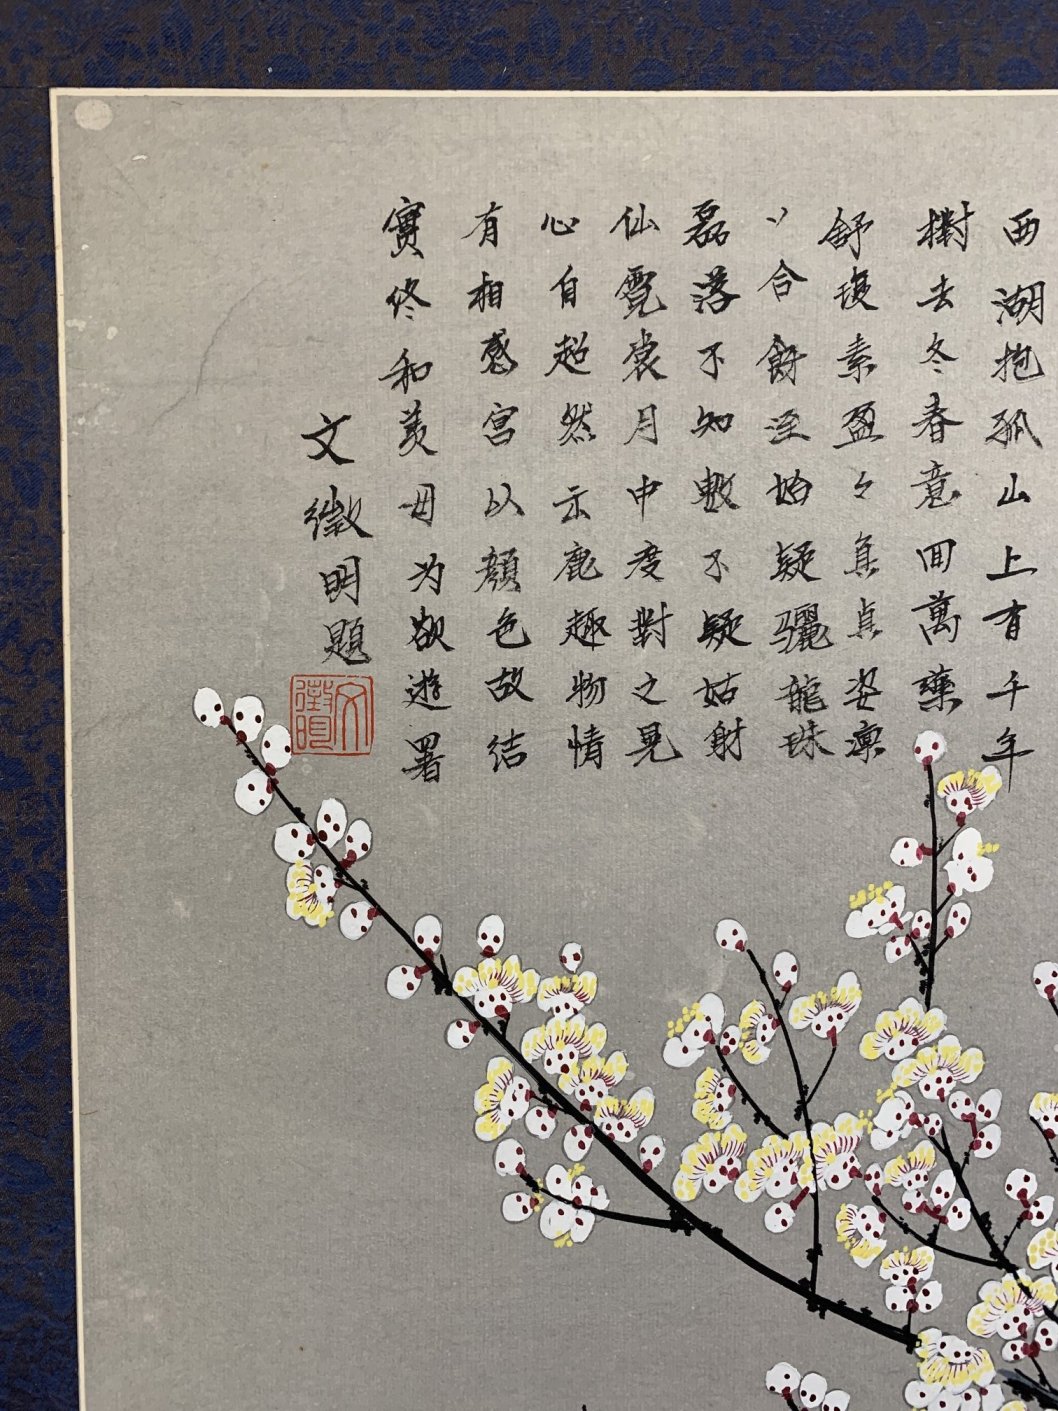 西湖抱孤山上有千年
樹去冬春意回萬蕊
舒瓊素盈々真真姿凛
冫合飾淫始疑驪龍珠
磊落不知數不疑姑射
仙霓裳月中度對之見
心自超然示鹿趣物情
有相感宮以顏色故結
實終和羹毋为欲遊署
文徵明題
文徵明